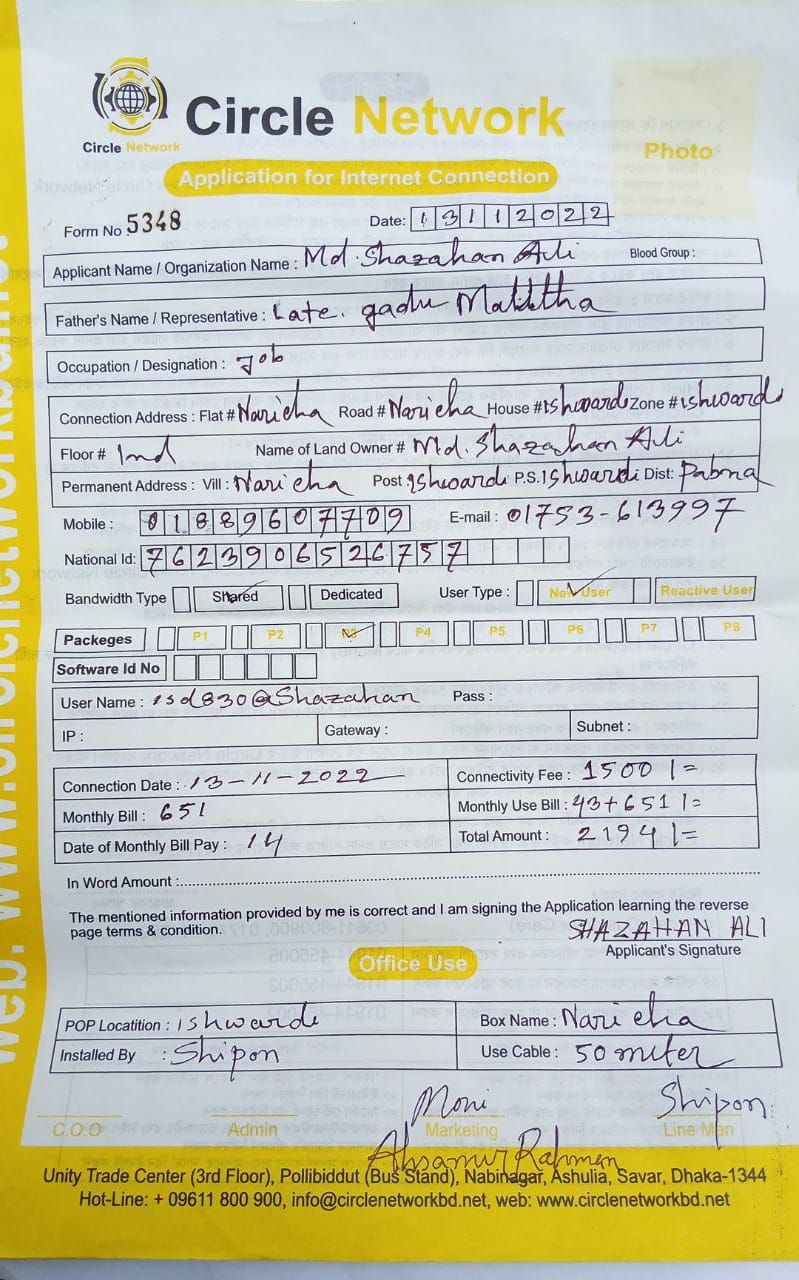 Circle Network
Circle Network
Photo
Application for Internet Connection
Form No. 5348 Date: 13112022
Applicant Name / Organization Name : Md. Shazahan Ali Blood Group :
Father's Name / Representative : Late. gadu Malitha
Occupation / Designation : Job
Connection Address : Flat # Naricha Road # Naricha House # Ishwardi Zone # Ishwardi
Floor # Ind Name of Land Owner # Md. Shazahan Ali
Permanent Address : Vill : Naricha Post Ishwardi P.S. Ishwardi Dist: Pabna
Mobile : 01889607709 E-mail : 01753-613997
National Id: 7623906526757
Bandwidth Type Shared Dedicated User Type : New User Reactive User
Packeges P1 P2 P3 P4 P5 P6 P7 P8
Software Id No
User Name : isd830@Shazahan Pass :
IP : Gateway : Subnet :
Connection Date : 13-11-2022 Connectivity Fee : 1500/=
Monthly Bill : 651 Monthly Use Bill : 43+651/=
Date of Monthly Bill Pay : 14 Total Amount : 2194/=
In Word Amount :
The mentioned information provided by me is correct and I am signing the Application learning the reverse
page terms & condition. SHAZAHAN ALI
Applicant's Signature
Office Use
POP Locatition : Ishwardi Box Name : Naricha
Installed By : Shipon Use Cable : 50 miter
Moni Shipon
C.O.O Admin Marketing Line Man
Ahsanur Rahman
Unity Trade Center (3rd Floor), Pollibiddut (Bus Stand), Nabinagar, Ashulia, Savar, Dhaka-1344
Hot-Line: + 09611 800 900, info@circlenetworkbd.net, web: www.circlenetworkbd.net
web: www.circlenetworkbd.net